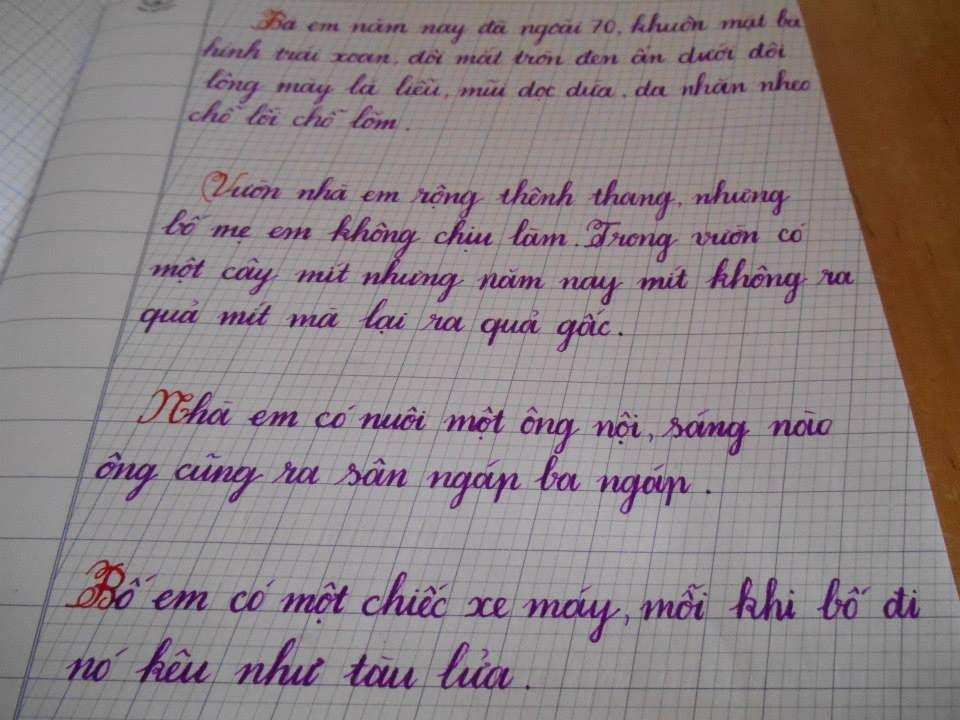 Bà em năm nay đã ngoài 70, khuôn mặt bà
hình trái xoan, đôi mắt tròn đen ẩn dưới đôi
lông mày lá liễu, mũi dọc dừa, da nhăn nheo
chỗ lồi chỗ lõm.
Vườn nhà em rộng thênh thang, nhưng
bố mẹ em không chịu làm. Trong vườn có
một cây mít nhưng năm nay mít không ra
quả mít mà lại ra quả gấc.
Nhà em có nuôi một ông nội, sáng nào
ông cũng ra sân ngáp ba ngáp.
Bố em có một chiếc xe máy, mỗi khi bố đi
nó kêu như tàu lửa.